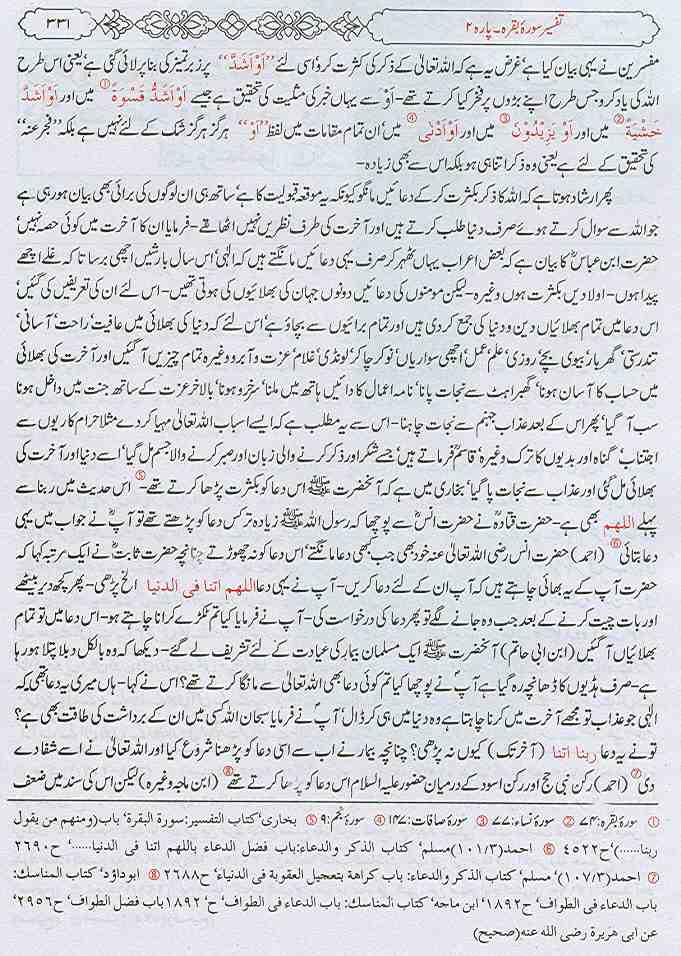 تفسیر سورۂ بقرہ۔ پارہ ۲
۳۳۱
مفسرین نے یہی بیان کیا ہے‘ غرض یہ ہے کہ اللہ تعالیٰ کے ذکر کی کثرت کرو‘ اسی لئے ”اَوْ اَشَدَّ“ پر زبر تمیز کی بنا پر لائی گئی ہے‘ یعنی اس طرح
اللہ کی یاد کرو جس طرح اپنے بڑوں پر فخر کیا کرتے تھے۔ اَوْ سے یہاں خبر کی مثلیت کی تحقیق ہے جیسے اَوْ اَشَدُّ قَسْوَةً ① میں اور اَوْ اَشَدَّ
خَشْيَةً ② میں اور اَوْ يَزِيْدُوْنَ ③ میں اور اَوْ اَدْنٰی ④ میں‘ ان تمام مقامات میں لفظ ”اَوْ“ ہرگز ہرگز شک کے لئے نہیں ہے بلکہ ”مخبر عنہ“
کی تحقیق کے لئے ہے یعنی وہ ذکر اتنا ہی ہو بلکہ اس سے بھی زیادہ۔
پھر ارشاد ہوتا ہے کہ اللہ کا ذکر بکثرت کر کے دعائیں مانگو کیونکہ یہ موقعہ قبولیت کا ہے‘ ساتھ ہی ان لوگوں کی برائی بھی بیان ہو رہی ہے
جو اللہ سے سوال کرتے ہوئے صرف دنیا طلب کرتے ہیں اور آخرت کی طرف نظریں نہیں اٹھاتے۔ فرمایا ان کا آخرت میں کوئی حصہ نہیں‘
حضرت ابن عباسؓ کا بیان ہے کہ بعض اعراب یہاں ٹھہر کر صرف یہی دعائیں مانگتے ہیں کہ الٰہی‘ اس سال بارشیں اچھی برسا تا کہ غلے اچھے
پیدا ہوں۔ اولادیں بکثرت ہوں وغیرہ۔ لیکن مومنوں کی دعائیں دونوں جہان کی بھلائیوں کی ہوتی تھیں۔ اس لئے ان کی تعریفیں کی گئیں‘
اس دعا میں تمام بھلائیاں دین و دنیا کی جمع کر دی ہیں اور تمام برائیوں سے بچاؤ ہے‘ اس لئے کہ دنیا کی بھلائی میں عافیت‘ راحت‘ آسانی‘
تندرستی‘ گھر بار‘ بیوی بچے‘ روزی‘ علم‘ عمل‘ اچھی سواریاں‘ نوکر چاکر‘ لونڈی‘ غلام‘ عزت و آبرو وغیرہ تمام چیزیں آگئیں اور آخرت کی بھلائی
میں حساب کا آسان ہونا‘ گھبراہٹ سے نجات پانا‘ نامہ اعمال کا دائیں ہاتھ میں ملنا‘ سرخرو ہونا‘ بالآخر عزت کے ساتھ جنت میں داخل ہونا
سب آ گیا‘ پھر اس کے بعد عذاب جہنم سے نجات چاہنا۔ اس سے یہ مطلب ہے کہ ایسے اسباب اللہ تعالیٰ مہیا کر دے مثلاً حرام کاریوں سے
اجتناب‘ گناہ اور بدیوں کا ترک وغیرہ‘ قاسمؒ فرماتے ہیں‘ جسے شکر اور ذکر کرنے والی زبان اور صبر کرنے والا جسم مل گیا‘ اسے دنیا اور آخرت کی
بھلائی مل گئی اور عذاب سے نجات پا گیا‘ بخاری میں ہے کہ آنحضرت ﷺ اس دعا کو بکثرت پڑھا کرتے تھے۔ ⑤ اس حدیث میں ربنا سے
پہلے اللھم بھی ہے۔ حضرت قتادہؒ نے حضرت انسؓ سے پوچھا کہ رسول اللہ ﷺ زیادہ تر کس دعا کو پڑھتے تھے تو آپؓ نے جواب میں یہی
دعا بتائی ⑥ (احمد) حضرت انس رضی اللہ تعالیٰ عنہ خود بھی جب بھی دعا مانگتے‘ اس دعا کو نہ چھوڑتے چنانچہ حضرت ثابتؒ نے ایک مرتبہ کہا کہ
حضرت آپ کے یہ بھائی چاہتے ہیں کہ آپ ان کے لئے دعا کریں۔ آپ نے یہی دعا اللھم اتنا فی الدنیا الخ پڑھی۔ پھر کچھ دیر بیٹھے
اور بات چیت کرنے کے بعد جب وہ جانے لگے تو پھر دعا کی درخواست کی۔ آپ نے فرمایا کیا تم ٹکڑے کرانا چاہتے ہو۔ اس دعا میں تو تمام
بھلائیاں آ گئیں (ابن ابی حاتم) آنحضرت ﷺ ایک مسلمان بیمار کی عیادت کے لئے تشریف لے گئے۔ دیکھا کہ وہ بالکل دبلا پتلا ہو رہا
ہے۔ صرف ہڈیوں کا ڈھانچہ رہ گیا ہے آپؐ نے پوچھا کیا تم کوئی دعا بھی اللہ تعالیٰ سے مانگا کرتے تھے؟ اس نے کہا۔ ہاں میری یہ دعا تھی کہ
الٰہی جو عذاب تو مجھے آخرت میں کرنا چاہتا ہے وہ دنیا میں ہی کر ڈال‘ آپؐ نے فرمایا سبحان اللہ کسی میں ان کے برداشت کی طاقت بھی ہے؟
تو نے یہ دعا ربنا اتنا (آخر تک) کیوں نہ پڑھی؟ چنانچہ بیمار نے اب سے اسی دعا کو پڑھنا شروع کیا اور اللہ تعالیٰ نے اسے شفا دے
دی ⑦ (احمد) رکن نبی حج اور رکن اسود کے درمیان حضور علیہ السلام اس دعا کو پڑھا کرتے تھے ⑧ (ابن ماجہ وغیرہ) لیکن اس کی سند میں ضعف
① سورۂ بقرہ: ۷۴ ② سورۂ نساء: ۷۷ ③ سورۂ صافات: ۱۴۷ ④ سورۂ نجم: ۹ ⑤ بخاری‘ کتاب التفسیر: سورة البقرة‘ باب (ومنهم من يقول
ربنا......)‘ ح ۴۵۲۲ ⑥ احمد (۳/۱۰۱) مسلم‘ کتاب الذکر والدعاء: باب فضل الدعاء باللهم اتنا فی الدنيا......‘ ح ۲۶۹۰
⑦ احمد (۳/۱۰۷)‘ مسلم‘ کتاب الذکر والدعاء: باب کراهة بتعجیل العقوبة فی الدنياء‘ ح ۲۶۸۸ ⑧ ابوداؤد‘ کتاب المناسك:
باب الدعاء فی الطواف‘ ح ۱۸۹۲‘ ابن ماجه‘ کتاب المناسك: باب الدعاء فی الطواف‘ ح‘ ۱۸۹۲ باب فضل الطواف‘ ح ۲۹۵۶
عن ابی هريرة رضی الله عنه (صحیح)